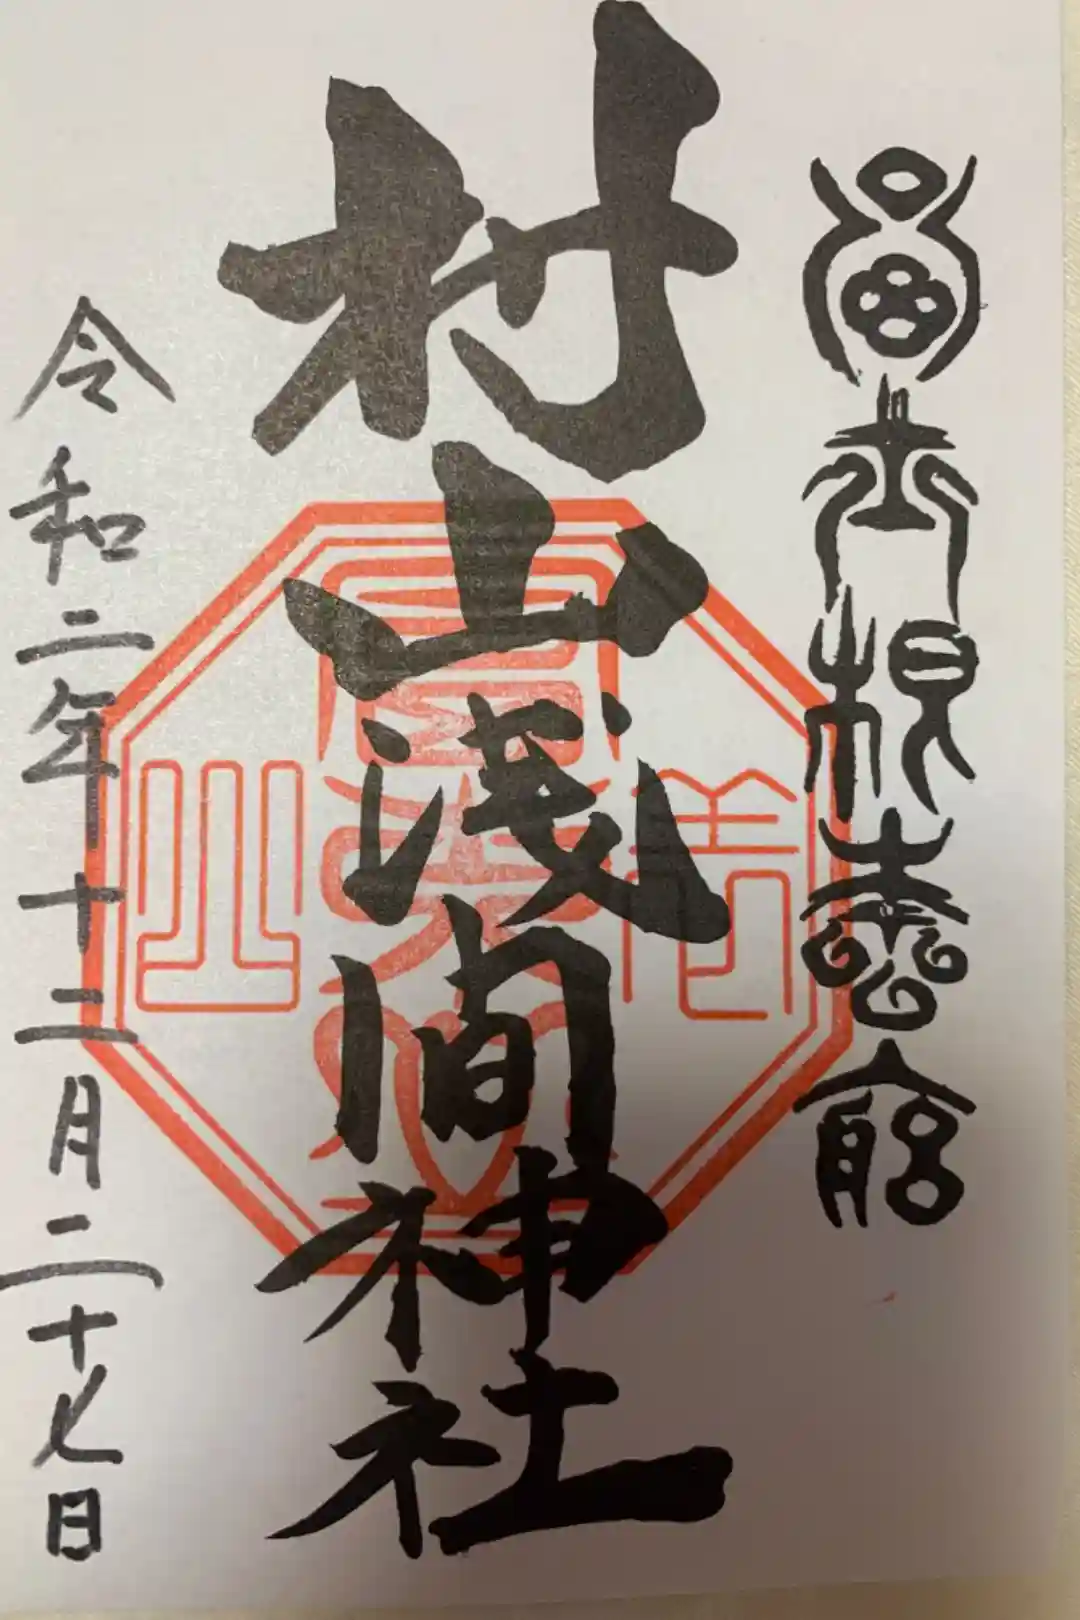 富士根本宮
村山浅間神社
令和二年十二月二十七日